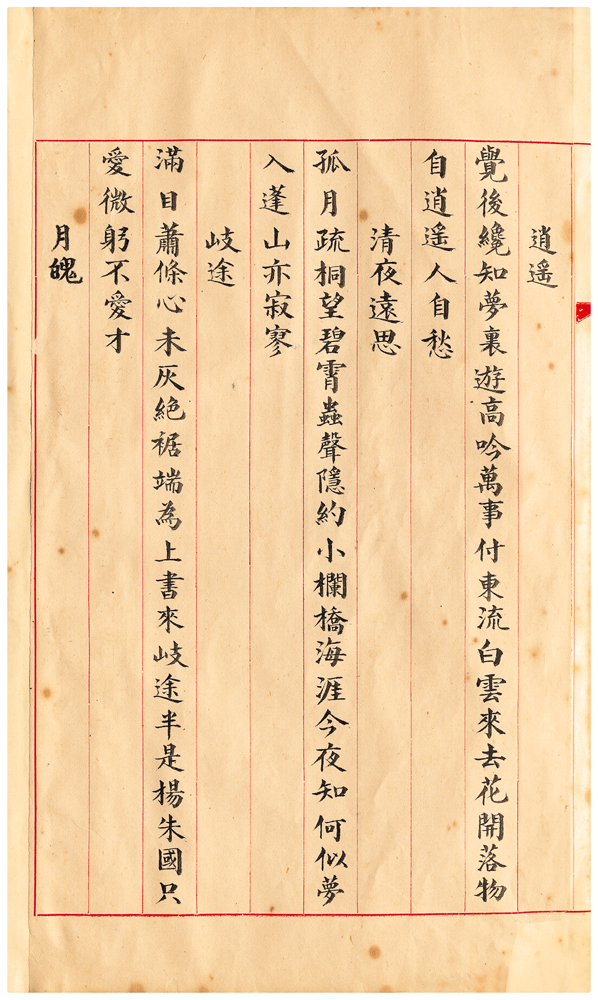 逍遥
覺後纔知夢裏遊高吟萬事付東流白雲來去花開落物
自逍遥人自愁
清夜遠思
孤月疏桐望碧霄蟲聲隱約小欄橋海涯今夜知何似夢
入蓬山亦寂寥
岐途
滿目蕭條心未灰絶裾端為上書來岐途半是楊朱國只
愛微躬不愛才
月魄